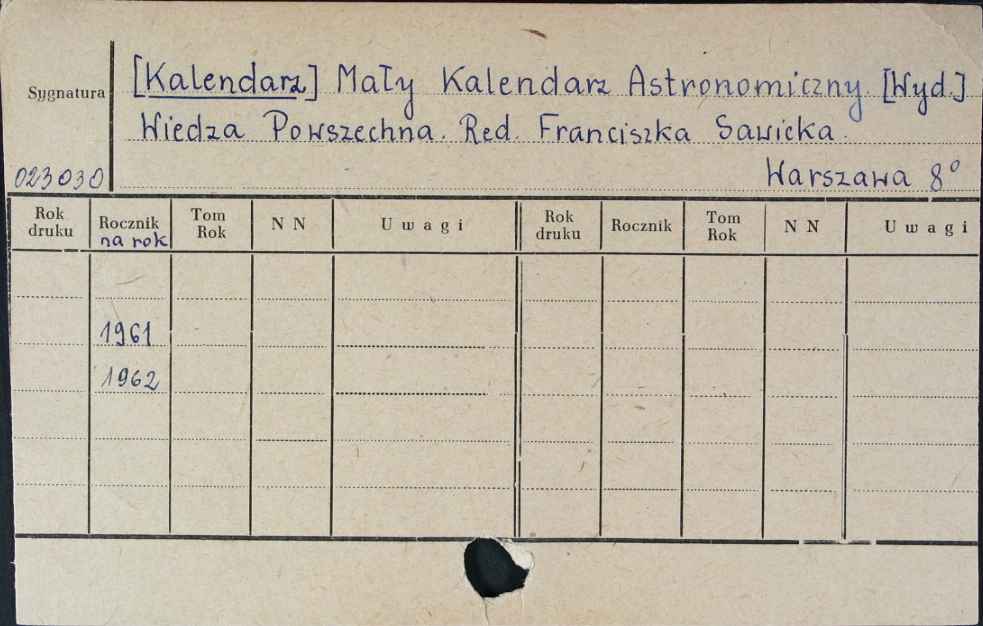 Sygnatura
[Kalendarz] Mały Kalendarz Astronomiczny. [Wyd.]
Wiedza Powszechna. Red. Franciszka Sawicka.
023030
Warszawa 8°
Rok druku
Rocznik na rok
Tom Rok
N N
Uwagi
Rok druku
Rocznik
Tom Rok
N N
Uwagi
1961
1962